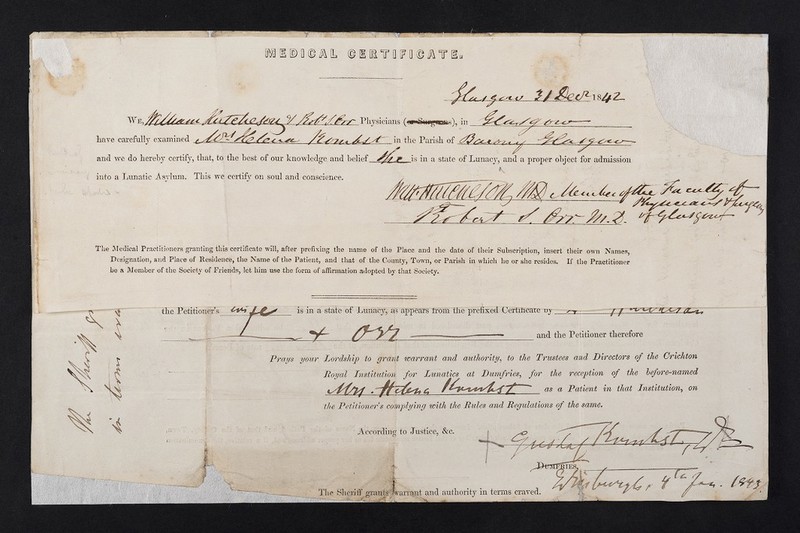 MEDICAL CERTIFICATE.
Glasgow 31 Decr 1842
WE, William Hutcheson & Robt S Orr Physicians (or Surgeons), in Glasgow
have carefully examined Mrs Helena Kombst in the Parish of Barony Glasgow
and we do hereby certify, that, to the best of our knowledge and belief She is in a state of Lunacy, and a proper object for admission
into a Lunatic Asylum. This we certify on soul and conscience.
Wm Hutcheson, MD. Member of the Faculty of
Physicians & Surgeons
Robert S. Orr. M.D. of Glasgow
The Medical Practitioners granting this certificate will, after prefixing the name of the Place and the date of their Subscription, insert their own Names,
Designation, and Place of Residence, the Name of the Patient, and that of the County, Town, or Parish in which he or she resides. If the Practitioner
be a Member of the Society of Friends, let him use the form of affirmation adopted by that Society.
the Petitioner's wife is in a state of Lunacy, as appears from the prefixed Certificate by Hutcheson
+ Orr and the Petitioner therefore
Prays your Lordship to grant warrant and authority, to the Trustees and Directors of the Crichton
Royal Institution for Lunatics at Dumfries, for the reception of the before-named
Mrs. Helena Kombst as a Patient in that Institution, on
the Petitioner's complying with the Rules and Regulations of the same.
According to Justice, &c.
Gustaf Kombst,
DUMFRIES,
Edinburgh, 4th Jan. 1843
The Sheriff grants warrant and authority in terms craved.
The Sheriff gr
in terms cra